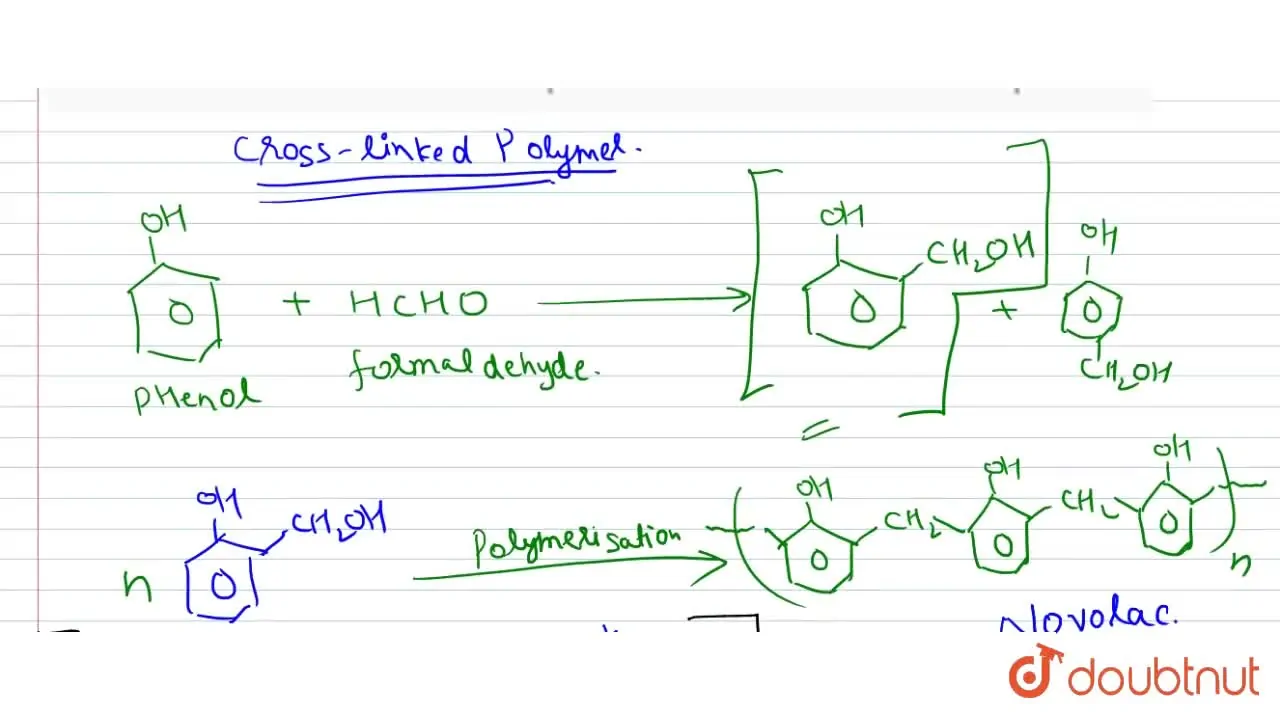 Cross-linked Polymer.
OH
+ HCHO
formaldehyde.
PHenol
OH
CH₂OH
+
OH
CH₂OH
=
n
OH
CH₂OH
Polymerisation
OH
CH₂
OH
CH₂
OH
n
Novolac.
doubtnut